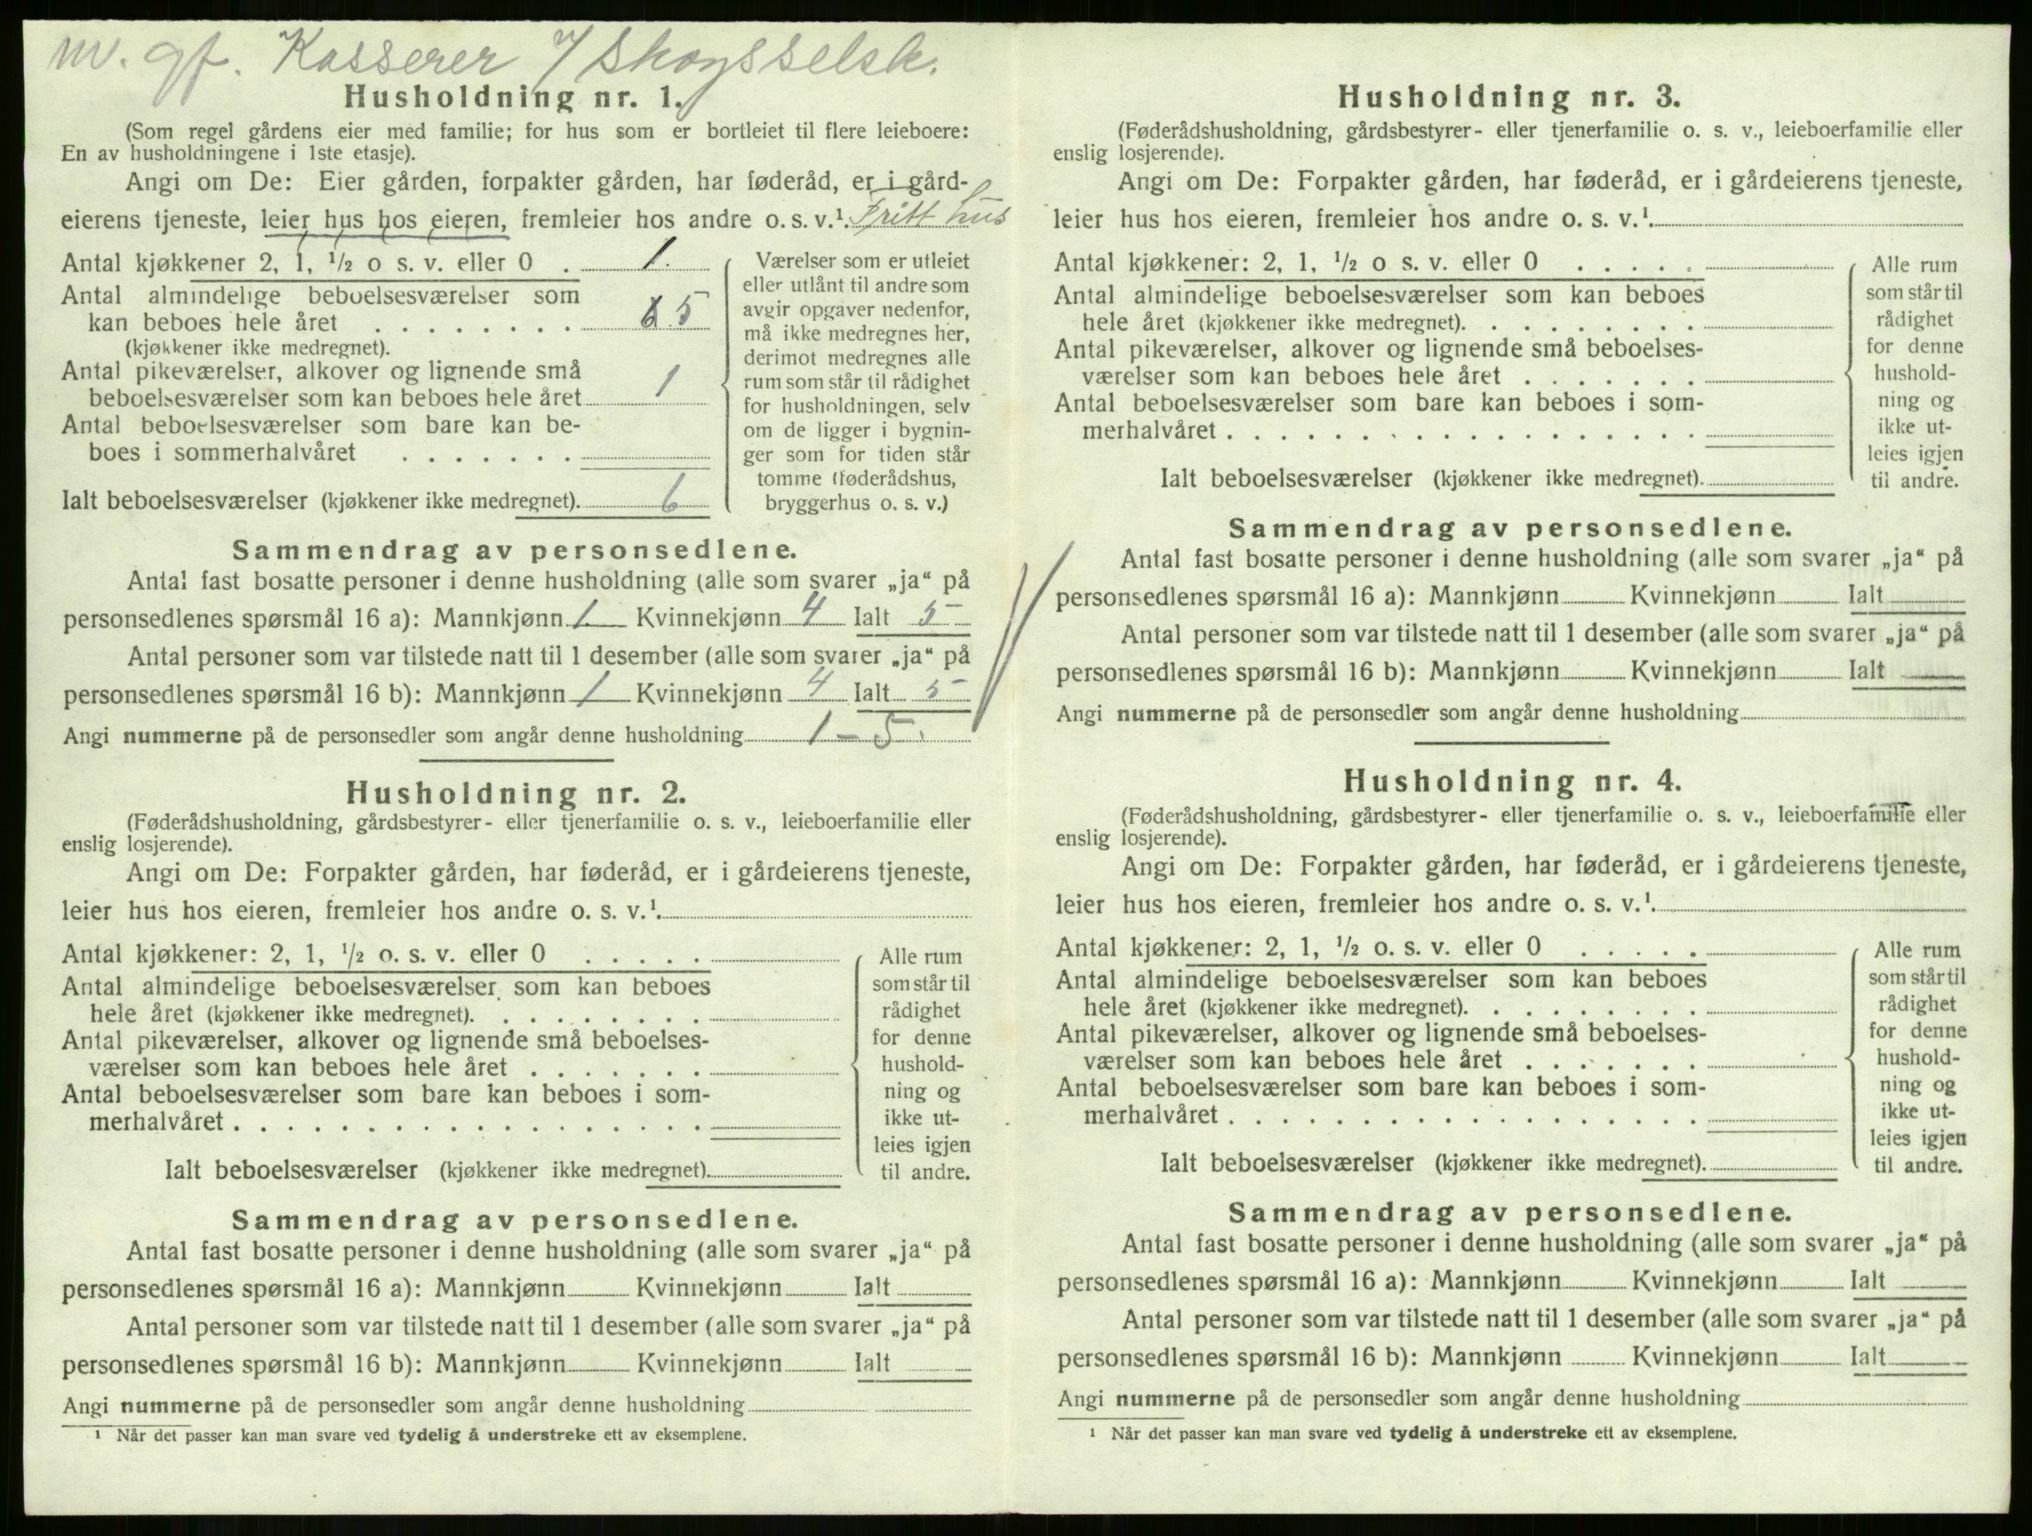 nv. gf. Kasserer i Skogsselsk.
Husholdning nr. 1.
(Som regel gårdens eier med familie; for hus som er bortleiet til flere leieboere:
En av husholdningene i 1ste etasje).
Angi om De: Eier gården, forpakter gården, har føderåd, er i gård-
eierens tjeneste, leier hus hos eieren, fremleier hos andre o. s. v.¹ Fritt hus
Antal kjøkkener 2, 1, ½ o s. v. eller 0 . 1.
Antal almindelige beboelsesværelser som
kan beboes hele året . . . . . . . . 5
(kjøkkener ikke medregnet).
Antal pikeværelser, alkover og lignende små
beboelsesværelser som kan beboes hele året 1
Antal beboelsesværelser som bare kan be-
boes i sommerhalvåret . . . . . . .
Ialt beboelsesværelser (kjøkkener ikke medregnet). 6
Værelser som er utleiet
eller utlånt til andre som
avgir opgaver nedenfor,
må ikke medregnes her,
derimot medregnes alle
rum som står til rådighet
for husholdningen, selv
om de ligger i bygnin-
ger som for tiden står
tomme (føderådshus,
bryggerhus o. s. v.)
Sammendrag av personsedlene.
Antal fast bosatte personer i denne husholdning (alle som svarer „ja“ på
personsedlenes spørsmål 16 a): Mannkjønn 1 Kvinnekjønn 4 Ialt 5
Antal personer som var tilstede natt til 1 desember (alle som svarer „ja“ på
personsedlenes spørsmål 16 b): Mannkjønn 1 Kvinnekjønn 4 Ialt 5
Angi nummerne på de personsedler som angår denne husholdning 1 - 5.
Husholdning nr. 2.
(Føderådshusholdning, gårdsbestyrer- eller tjenerfamilie o. s. v., leieboerfamilie eller
enslig losjerende).
Angi om De: Forpakter gården, har føderåd, er i gårdeierens tjeneste,
leier hus hos eieren, fremleier hos andre o. s. v.¹
Antal kjøkkener: 2, 1, ½ o. s. v. eller 0 . . . . .
Antal almindelige beboelsesværelser som kan beboes
hele året (kjøkkener ikke medregnet). . . . . . . . .
Antal pikeværelser, alkover og lignende små beboelses-
værelser som kan beboes hele året . . . . . . .
Antal beboelsesværelser som bare kan beboes i som-
merhalvåret . . . . . . . . . . . . . . . . . .
Ialt beboelsesværelser (kjøkkener ikke medregnet).
Alle rum
som står til
rådighet
for denne
hushold-
ning og
ikke ut-
leies igjen
til andre.
Sammendrag av personsedlene.
Antal fast bosatte personer i denne husholdning (alle som svarer „ja“ på
personsedlenes spørsmål 16 a): Mannkjønn Kvinnekjønn Ialt
Antal personer som var tilstede natt til 1 desember (alle som svarer „ja“ på
personsedlenes spørsmål 16 b): Mannkjønn Kvinnekjønn Ialt
Angi nummerne på de personsedler som angår denne husholdning
¹ Når det passer kan man svare ved tydelig å understreke ett av eksemplene.
Husholdning nr. 3.
(Føderådshusholdning, gårdsbestyrer- eller tjenerfamilie o. s. v., leieboerfamilie eller
enslig losjerende).
Angi om De: Forpakter gården, har føderåd, er i gårdeierens tjeneste,
leier hus hos eieren, fremleier hos andre o. s. v.¹
Antal kjøkkener: 2, 1, ½ o s. v. eller 0 . . . . .
Antal almindelige beboelsesværelser som kan beboes
hele året (kjøkkener ikke medregnet). . . . . . . . .
Antal pikeværelser, alkover og lignende små beboelses-
værelser som kan beboes hele året . . . . . . .
Antal beboelsesværelser som bare kan beboes i som-
merhalvåret . . . . . . . . . . . . . . . . . .
Ialt beboelsesværelser (kjøkkener ikke medregnet).
Alle rum
som står til
rådighet
for denne
hushold-
ning og
ikke ut-
leies igjen
til andre.
Sammendrag av personsedlene.
Antal fast bosatte personer i denne husholdning (alle som svarer „ja“ på
personsedlenes spørsmål 16 a): Mannkjønn Kvinnekjønn Ialt
Antal personer som var tilstede natt til 1 desember (alle som svarer „ja“ på
personsedlenes spørsmål 16 b): Mannkjønn Kvinnekjønn Ialt
Angi nummerne på de personsedler som angår denne husholdning
Husholdning nr. 4.
(Føderådshusholdning, gårdsbestyrer- eller tjenerfamilie o. s. v., leieboerfamilie eller
enslig losjerende).
Angi om De: Forpakter gården, har føderåd, er i gårdeierens tjeneste,
leier hus hos eieren, fremleier hos andre o. s. v.¹
Antal kjøkkener: 2, 1, ½ o. s. v. eller 0 . . . . .
Antal almindelige beboelsesværelser som kan beboes
hele året (kjøkkener ikke medregnet). . . . . . . . .
Antal pikeværelser, alkover og lignende små beboelses-
værelser som kan beboes hele året . . . . . . .
Antal beboelsesværelser som bare kan beboes i som-
merhalvåret . . . . . . . . . . . . . . . . . .
Ialt beboelsesværelser (kjøkkener ikke medregnet).
Alle rum
som står til
rådighet
for denne
hushold-
ning og
ikke ut-
leies igjen
til andre.
Sammendrag av personsedlene.
Antal fast bosatte personer i denne husholdning (alle som svarer „ja“ på
personsedlenes spørsmål 16 a): Mannkjønn Kvinnekjønn Ialt
Antal personer som var tilstede natt til 1 desember (alle som svarer „ja“ på
personsedlenes spørsmål 16 b): Mannkjønn Kvinnekjønn Ialt
Angi nummerne på de personsedler som angår denne husholdning
¹ Når det passer kan man svare ved tydelig å understreke ett av eksemplene.